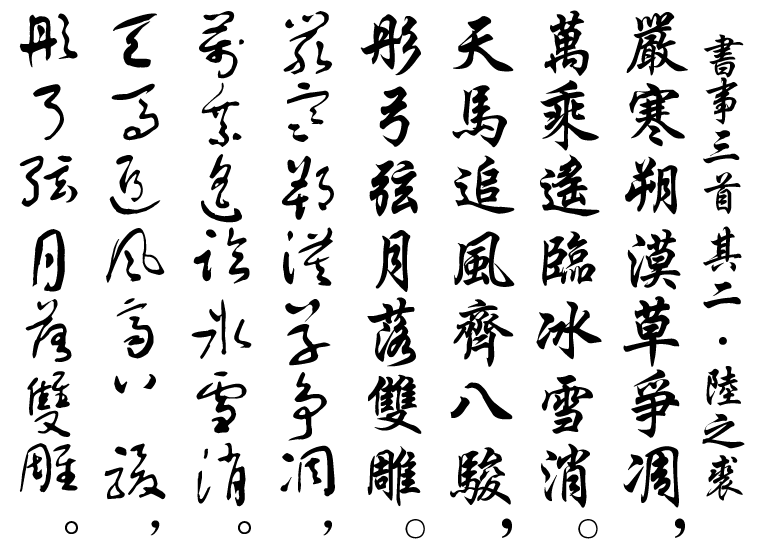 書事三首 其二・陸之裘
嚴寒朔漠草爭凋，
萬乘遙臨冰雪消。
天馬追風齊八駿，
彤弓弦月落雙雕。
嚴寒朔漠草爭凋，
萬乘遙臨冰雪消。
天馬追風齊八駿，
彤弓弦月落雙雕。